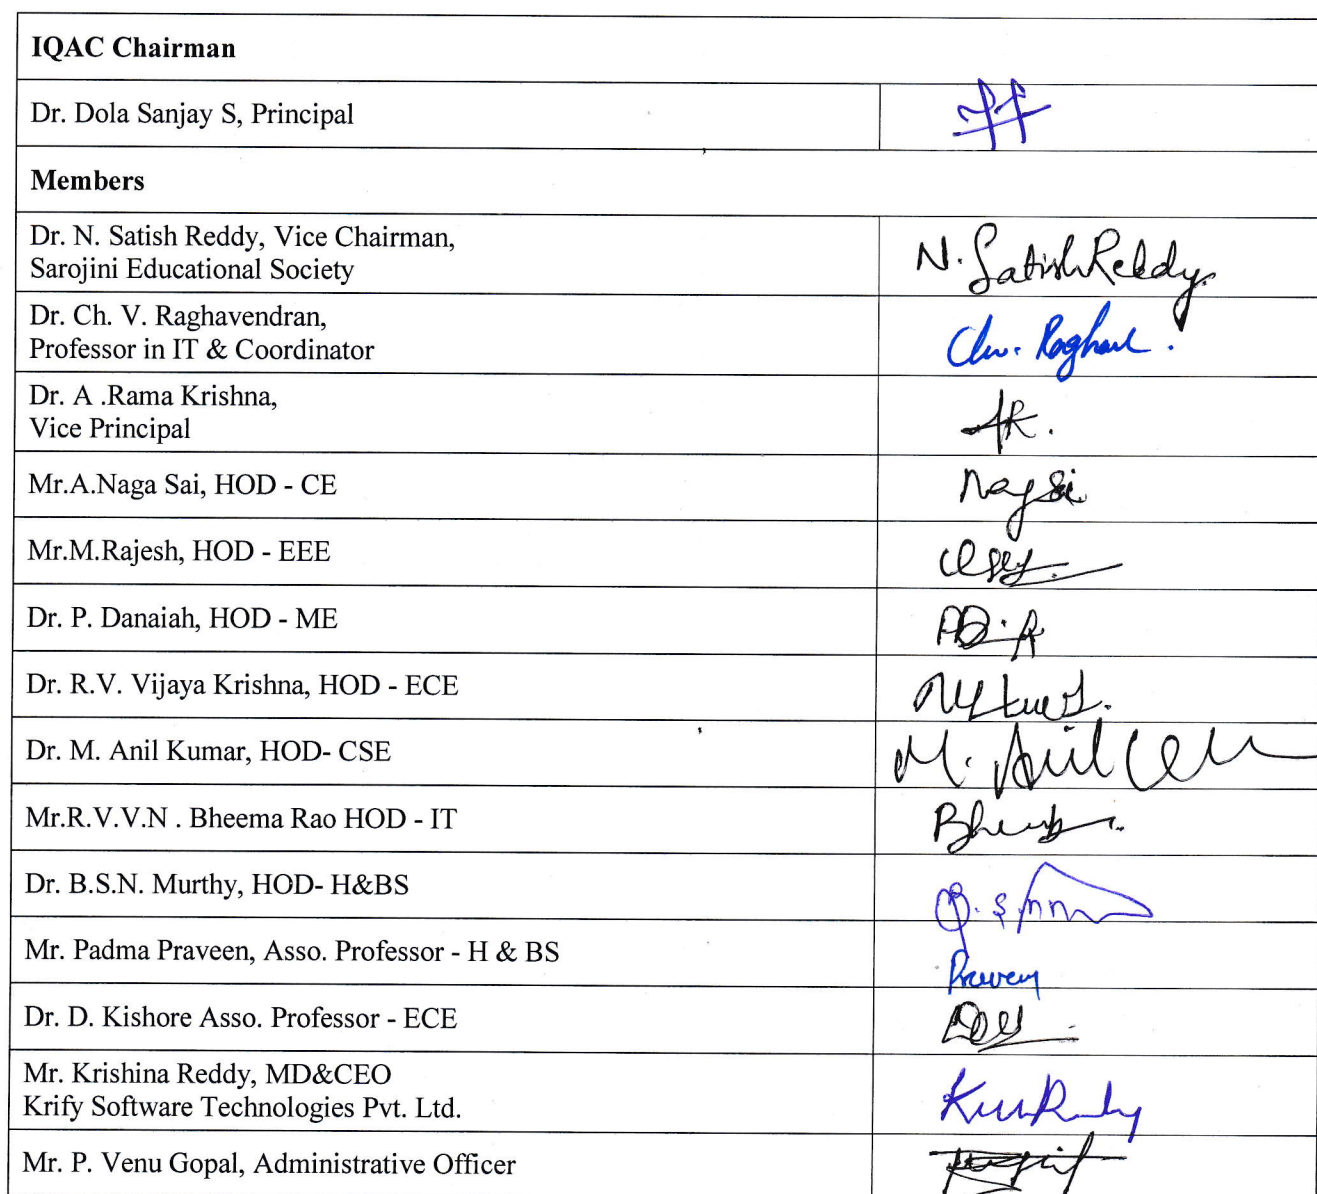 IQAC Chairman
Dr. Dola Sanjay S, Principal
Members
Dr. N. Satish Reddy, Vice Chairman,
Sarojini Educational Society
N. Satish Reddy
Dr. Ch. V. Raghavendran,
Professor in IT & Coordinator
Dr. A .Rama Krishna,
Vice Principal
Mr.A.Naga Sai, HOD - CE
Mr.M.Rajesh, HOD - EEE
Dr. P. Danaiah, HOD - ME
Dr. R.V. Vijaya Krishna, HOD - ECE
Dr. M. Anil Kumar, HOD- CSE
Mr.R.V.V.N . Bheema Rao HOD - IT
Dr. B.S.N. Murthy, HOD- H&BS
Mr. Padma Praveen, Asso. Professor - H & BS
Dr. D. Kishore Asso. Professor - ECE
Mr. Krishina Reddy, MD&CEO
Krify Software Technologies Pvt. Ltd.
Mr. P. Venu Gopal, Administrative Officer